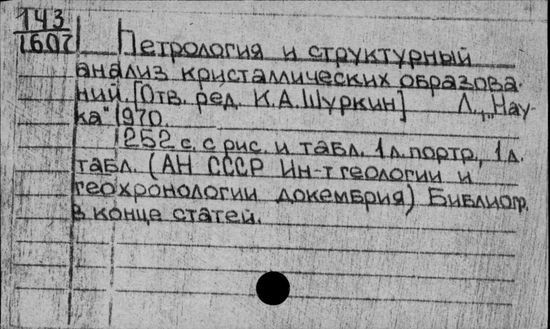 143
1607
Петрология и структурный
анализ кристаллических образова-
ний. [Отв. ред. К.А.Шуркин] Л., „Нау-
ка" 1970.
252 с. с рис. и табл. 1 л. портр., 1 л.
табл. (АН СССР Ин-т геологии и
геохронологии докембрия) Библиогр.
в конце статей.